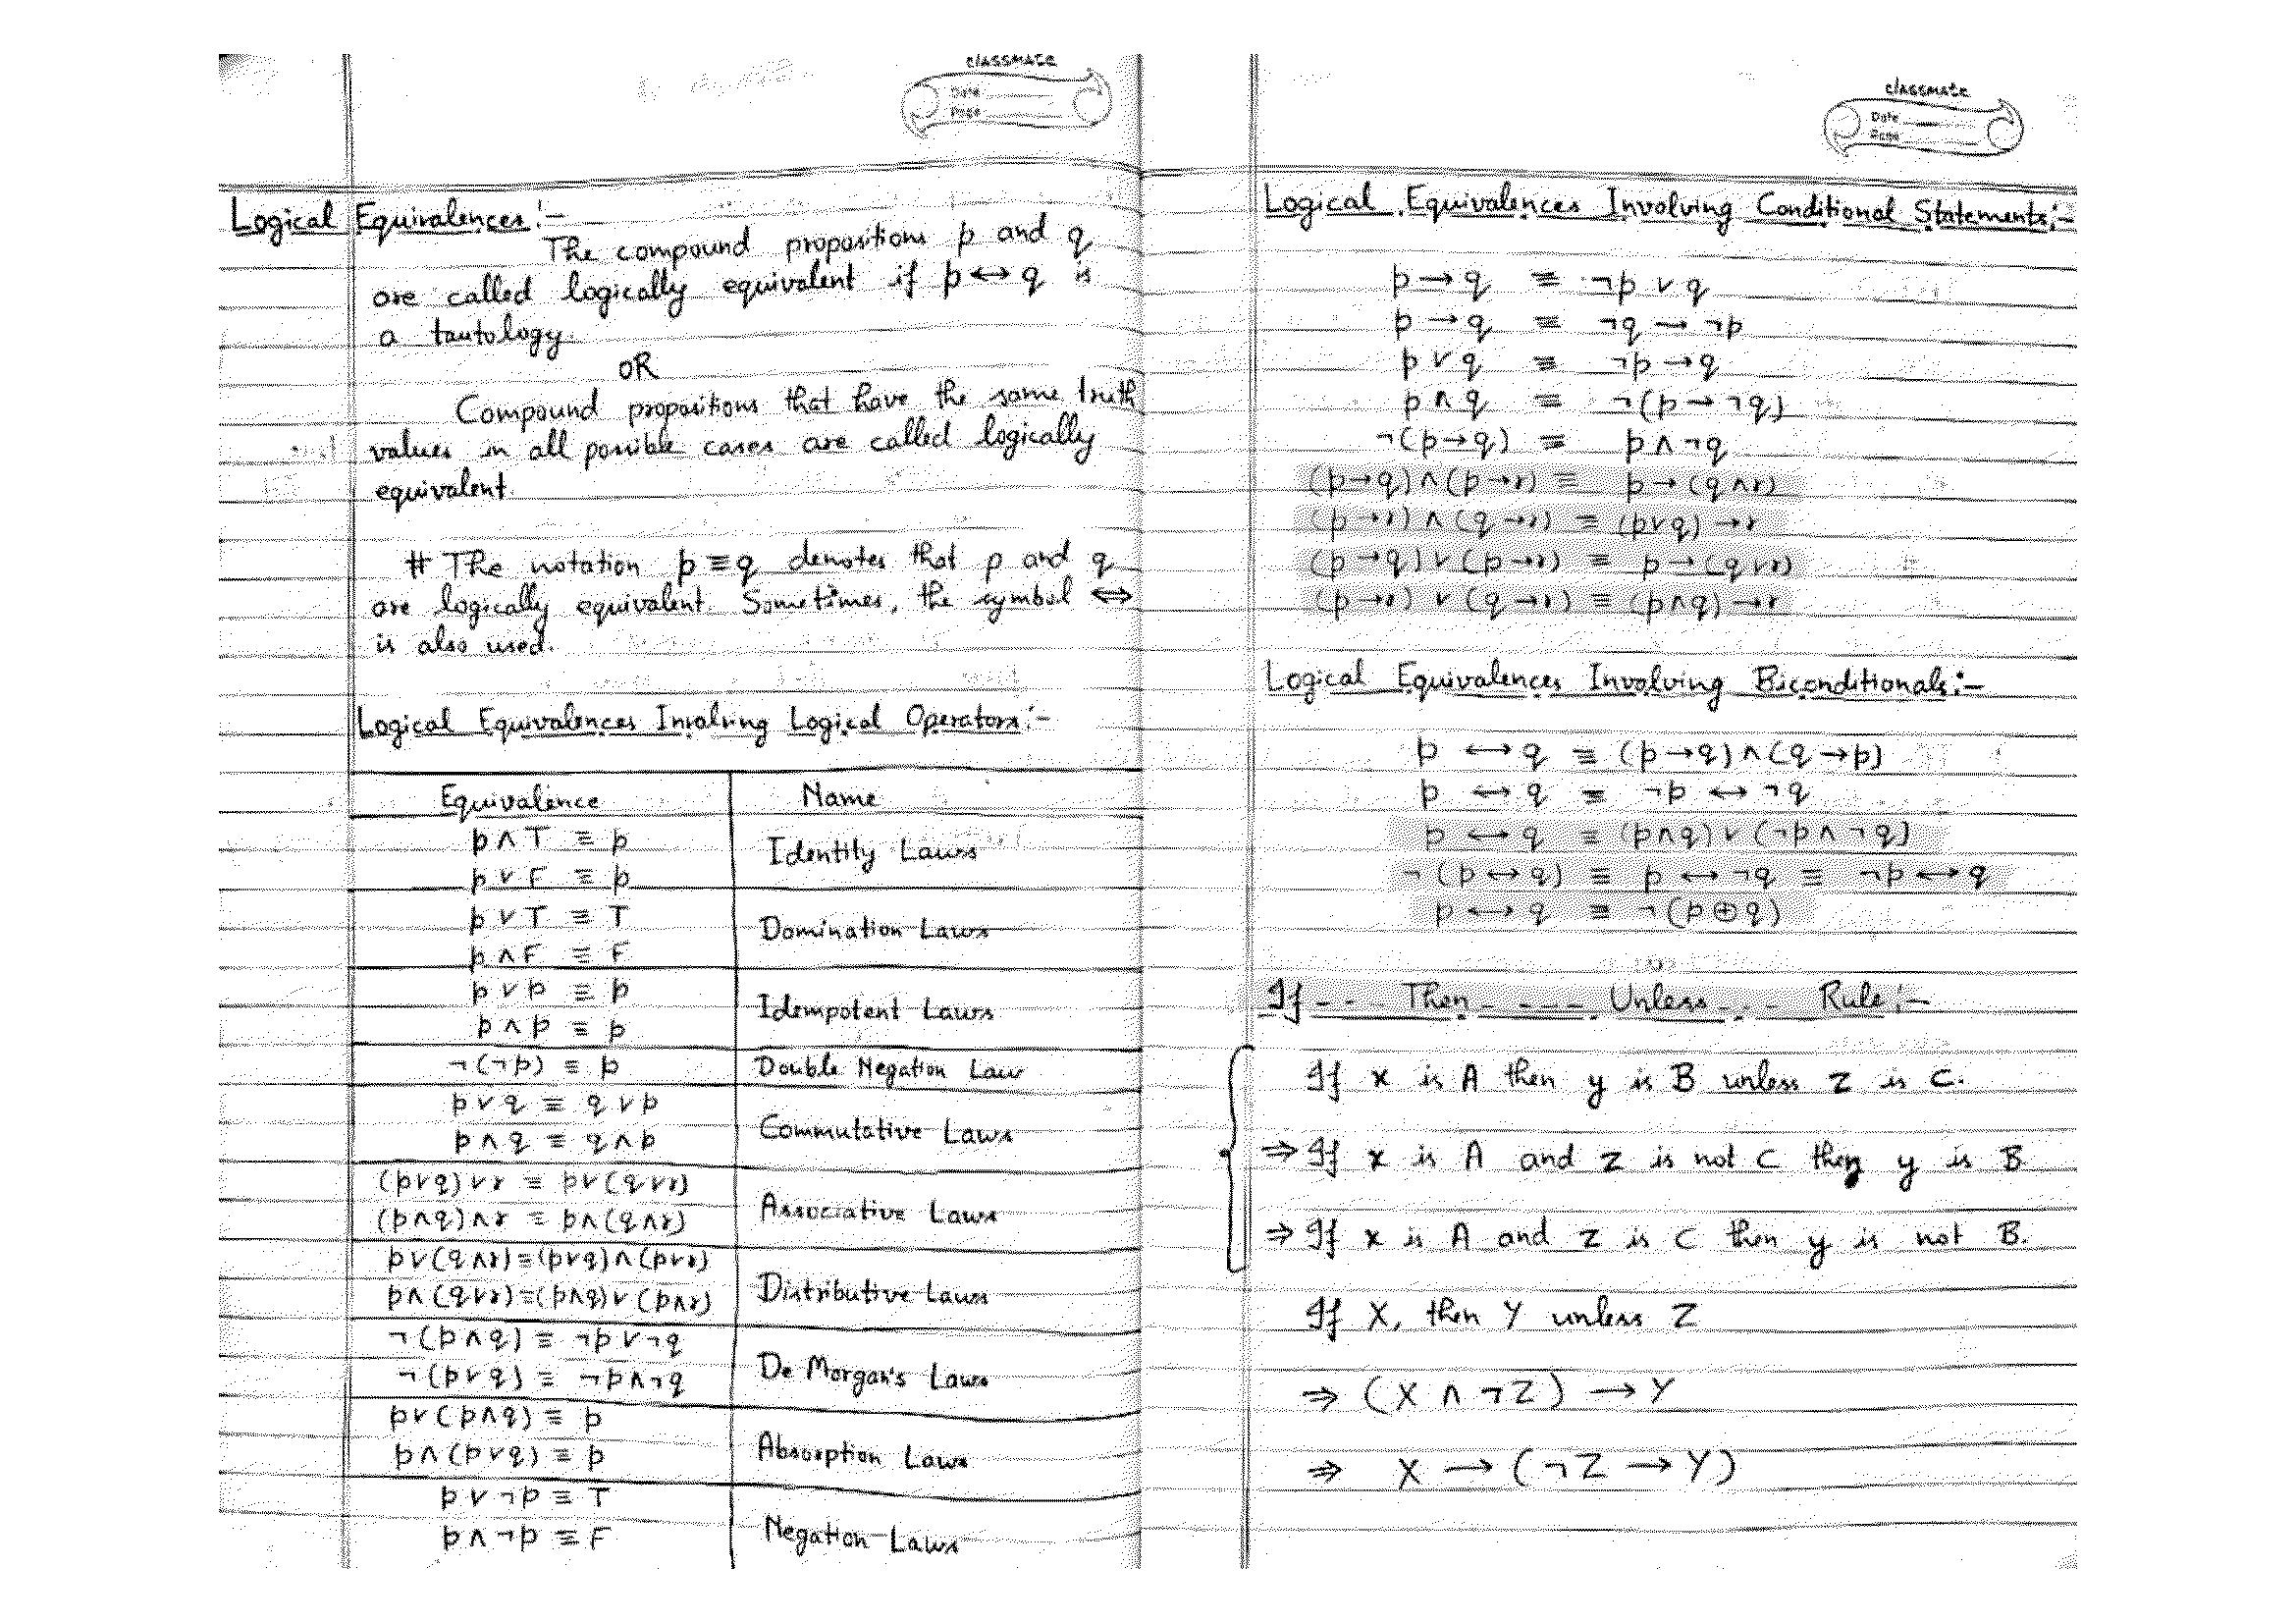 classmate
Date
Page
Logical Equivalences :-
The compound propositions p and q
are called logically equivalent if p ↔ q is
a tautology.
OR
Compound propositions that have the same truth
values in all possible cases are called logically
equivalent.
# The notation p ≡ q denotes that p and q
are logically equivalent. Sometimes, the symbol ⇔
is also used.
Logical Equivalences Involving Logical Operators :-
Equivalence Name
p ∧ T ≡ p
Identity Laws
p ∨ F ≡ p
p ∨ T ≡ T
Domination Laws
p ∧ F ≡ F
p ∨ p ≡ p
Idempotent Laws
p ∧ p ≡ p
¬(¬p) ≡ p Double Negation Law
p ∨ q ≡ q ∨ p
Commutative Laws
p ∧ q ≡ q ∧ p
(p∨q)∨r ≡ p∨(q∨r)
Associative Laws
(p∧q)∧r ≡ p∧(q∧r)
p∨(q∧r)≡(p∨q)∧(p∨r)
Distributive Laws
p∧(q∨r)≡(p∧q)∨(p∧r)
¬(p∧q) ≡ ¬p∨¬q
De Morgan's Laws
¬(p∨q) ≡ ¬p∧¬q
p∨(p∧q) ≡ p
Absorption Laws
p∧(p∨q) ≡ p
p∨¬p ≡ T
Negation Laws
p∧¬p ≡ F
classmate
Date
Page
Logical Equivalences Involving Conditional Statements :-
p → q ≡ ¬p ∨ q
p → q ≡ ¬q → ¬p
p ∨ q ≡ ¬p → q
p ∧ q ≡ ¬(p → ¬q)
¬(p→q) ≡ p ∧ ¬q
(p→q)∧(p→r) ≡ p→(q∧r)
(p→r)∧(q→r) ≡ (p∨q)→r
(p→q)∨(p→r) ≡ p→(q∨r)
(p→r)∨(q→r) ≡ (p∧q)→r
Logical Equivalences Involving Biconditionals :-
p ↔ q ≡ (p→q)∧(q→p)
p ↔ q ≡ ¬p ↔ ¬q
p ↔ q ≡ (p∧q)∨(¬p∧¬q)
¬(p↔q) ≡ p ↔ ¬q ≡ ¬p ↔ q
p ↔ q ≡ ¬(p⊕q)
If - - - Then - - - - - Unless - - - Rule :-
If x is A then y is B unless z is C.
⇒ If x is A and z is not C then y is B
⇒ If x is A and z is C then y is not B.
If X, then Y unless Z
⇒ (X ∧ ¬Z) → Y
⇒ X → (¬Z → Y)